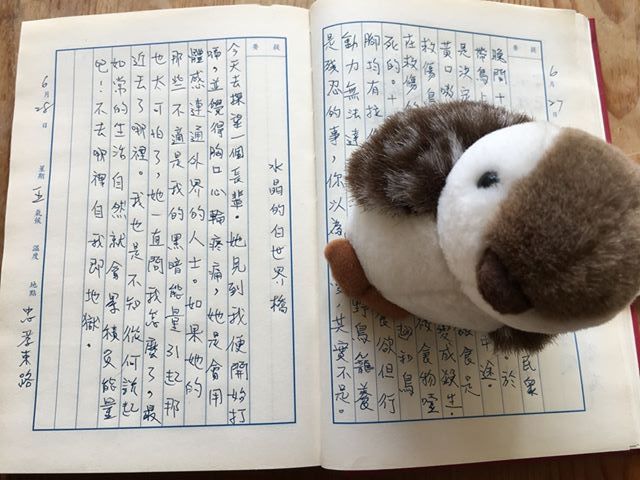 6月27日
提要
晚間十 民眾
帶鳥 於
是決定 途。
黃口嘴 食是
救傷鳥 變成殺生。
在救傷的 食物噎
死的。十 和鳥
腳均有拉 食欲但行
動力無法達 野鳥籠養
是殘忍的事，你以為 其實不是。
提要
水晶的自世界橋
今天去探望一個長輩。她見到我便開始打
嗝，並覺得胸口心輪疼痛，她是會用
體感連通外界的人士。如果她的
那些不適是我的黑暗能量引起那
也太可怕了，她一直問我怎麼了，最
近去了哪裡。我也是不知從何說起
如常的生活自然就會累積負能量
吧！不去哪裡自我即地獄。
6月28日 星期五 氣候 溫度 地點 忠孝東路